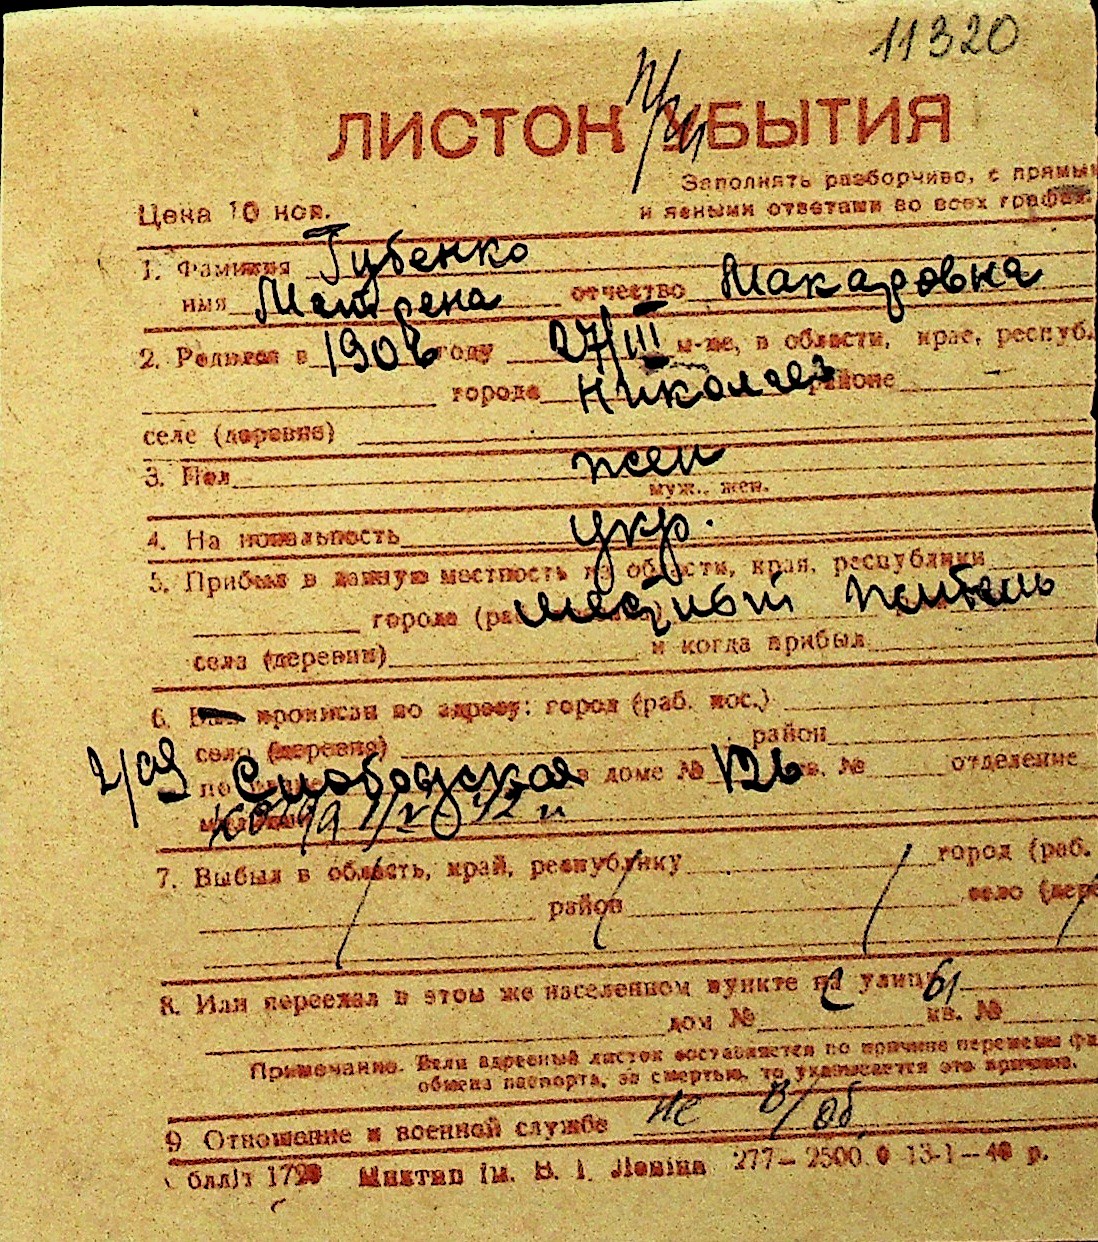 11320
ЛИСТОК УБЫТИЯ
при
Заполнять разборчиво, с прямыми
Цена 10 коп.
и ясными ответами во всех графах.
1. Фамилия Губенко
имя Матрена отчество Макаровна
2. Родился в 1908 году 27/III м-це, в области, крае, респуб.
городе Николаев районе
селе (деревне)
3. Пол жен
муж., жен.
4. На нональность укр.
5. Прибыл в данную местность из области, края, республики
города (ра местный житель
села (деревни) и когда прибыл
6. прописан по адресу: город (раб. пос.)
село (деревня) район
2/09 по Слободская в доме № 126 кв. № отделение
7. Выбыл в область, край, республику город (раб.
район село (дере
8. Или переехал в этом же населенном пункте на улицу
с 61
дом № кв. №
Примечание. Если адресный листок составляется по причине перемены фа
обмена паспорта, за смертью, то указывается это причине.
9 Отношение к военной службе не в/об
277—2500 13-1-40 р.